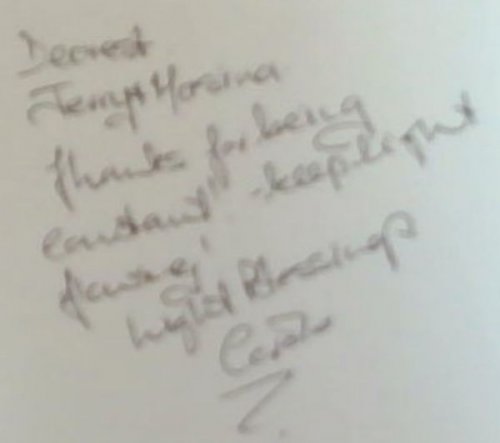 Dearest
Jerry & Marsina
thanks for being
constant" - keep light
flowing!
Light Blessings